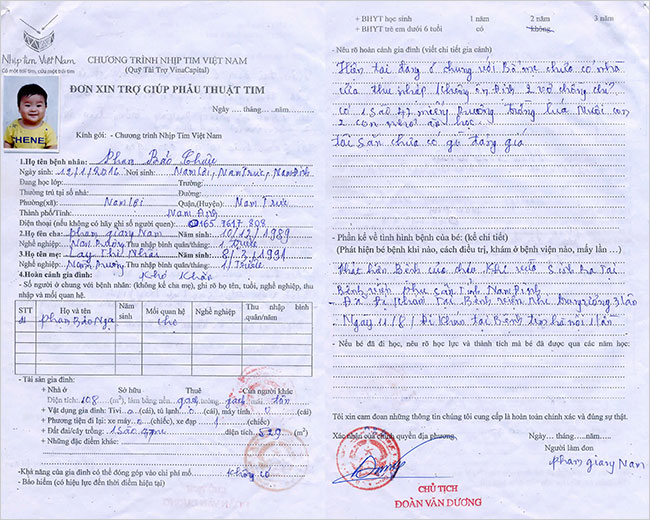 Nhịp Tim Việt Nam
Có một trái tim, cứu một trái tim
CHƯƠNG TRÌNH NHỊP TIM VIỆT NAM
(Quỹ Tài Trợ VinaCapital)
ĐƠN XIN TRỢ GIÚP PHẪU THUẬT TIM
Ngày .... tháng....năm.........
HENE
Kính gởi: - Chương trình Nhịp Tim Việt Nam
1.Họ tên bệnh nhân: Phạm Bảo
Ngày sinh: 12/1/2016 Nơi sinh: Nam Lợi, Nam Trực, Nam Định
Đang học lớp: Trường:
Thường trú tại số nhà: Đường:
Phường(xã): Nam Lợi Quận,(Huyện): Nam Trực
Thành phố/Tỉnh: Nam Định
Điện thoại (nếu không có hãy ghi số người quen): 0165 7617 808
2.Họ tên cha: phạm giang Nam Năm sinh: 10/12/1989
Nghề nghiệp: Thu nhập bình quân/tháng: 1
3.Họ tên mẹ: Năm sinh: 8/3/1991
Nghề nghiệp: Thu nhập bình quân/tháng: 1
4.Hoàn cảnh gia đình: Khó Khăn
- Số người ở chung với bệnh nhân: (không kể cha mẹ), ghi rõ họ tên, tuổi, nghề nghiệp, thu
nhập và mối quan hệ
STT Họ và tên Năm sinh Mối quan hệ Nghề nghiệp Thu nhập bình quân/năm
phạm Bảo
- Tài sản gia đình:
+ Nhà ở Sở hữu Thuê Của người khác
Diện tích 108 (m²), làm bằng nền gạch tường gạch mái tôn
+ Vật dụng gia đình: Tivi 0 (cái), tủ lạnh 0 (cái), máy tính 0 (cái)
+ Phương tiện đi lại: xe máy 0 (chiếc), xe đạp 1 (chiếc)
+ Đất đai/cây trồng: 1 sào diện tích (m²)
+ Những đặc điểm khác:
-Khả năng của gia đình có thể đóng góp vào chi phí mổ Không có
- Bảo hiểm (có hiệu lực đến thời điểm hiện tại)
+ BHYT học sinh 1 năm 2 năm 3 năm
+ BHYT trẻ em dưới 6 tuổi có không
- Nêu rõ hoàn cảnh gia đình (viết chi tiết gia cảnh)
Hiện tại đang ở chung với Bố mẹ chưa có nhà
cửa thu nhập không ổn định 2 vợ chồng chỉ
có 1 sào trồng lúa Nuôi con
2 con học
tài sản chưa có gì đáng giá
- Phần kể về tình hình bệnh của bé: (kể chi tiết)
(Phát hiện bé bệnh khi nào, cách điều trị, khám ở bệnh viện nào, mấy lần ...)
phát hiện Bệnh của cháu khi vừa sinh ra Tại
Bệnh viện phụ sản Tỉnh Nam Định
- Đã Đi khám Tại Bệnh viện Nhi trung ương
Ngày 11/8/ Đi khám tại Bệnh hà nội 1 lần
- Nếu bé đã đi học, nêu rõ học lực và thành tích mà bé đã được qua các năm học:
Tôi xin cam đoan những thông tin chúng tôi cung cấp là hoàn toàn chính xác và đúng sự thật.
Xác nhận của chính quyền địa phương Ngày.....tháng....năm.......
Người làm đơn
phạm giang Nam
CHỦ TỊCH
ĐOÀN VĂN DƯƠNG